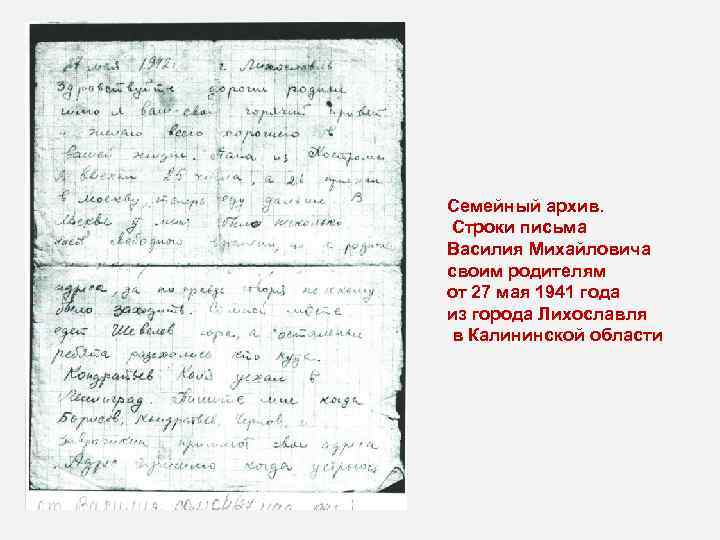 27 мая 1942г. г. Лихославль
Здравствуйте дорогие родители
шлю я вам свой горячий привет
и желаю всего хорошего в
вашей жизни. Папа из Костромы
я выехал 25 числа, а 26 приехал
в Москву, теперь еду дальше. В
Москве у меня было несколько
часов свободного времени, но я
адреса, да по правде говоря не к кому
было заходить. Со мной вместе
едет Шевелев а остальные
ребята разъехались кто куда.
Кондратьев Коля уехал в
Ленинград. Пишите мне когда
Борисов, Кондратьев, Чернов, и
пришлют свои адреса
Адрес пришлю когда устроюсь
от Василия
Семейный архив.
Строки письма
Василия Михайловича
своим родителям
от 27 мая 1941 года
из города Лихославля
в Калининской области